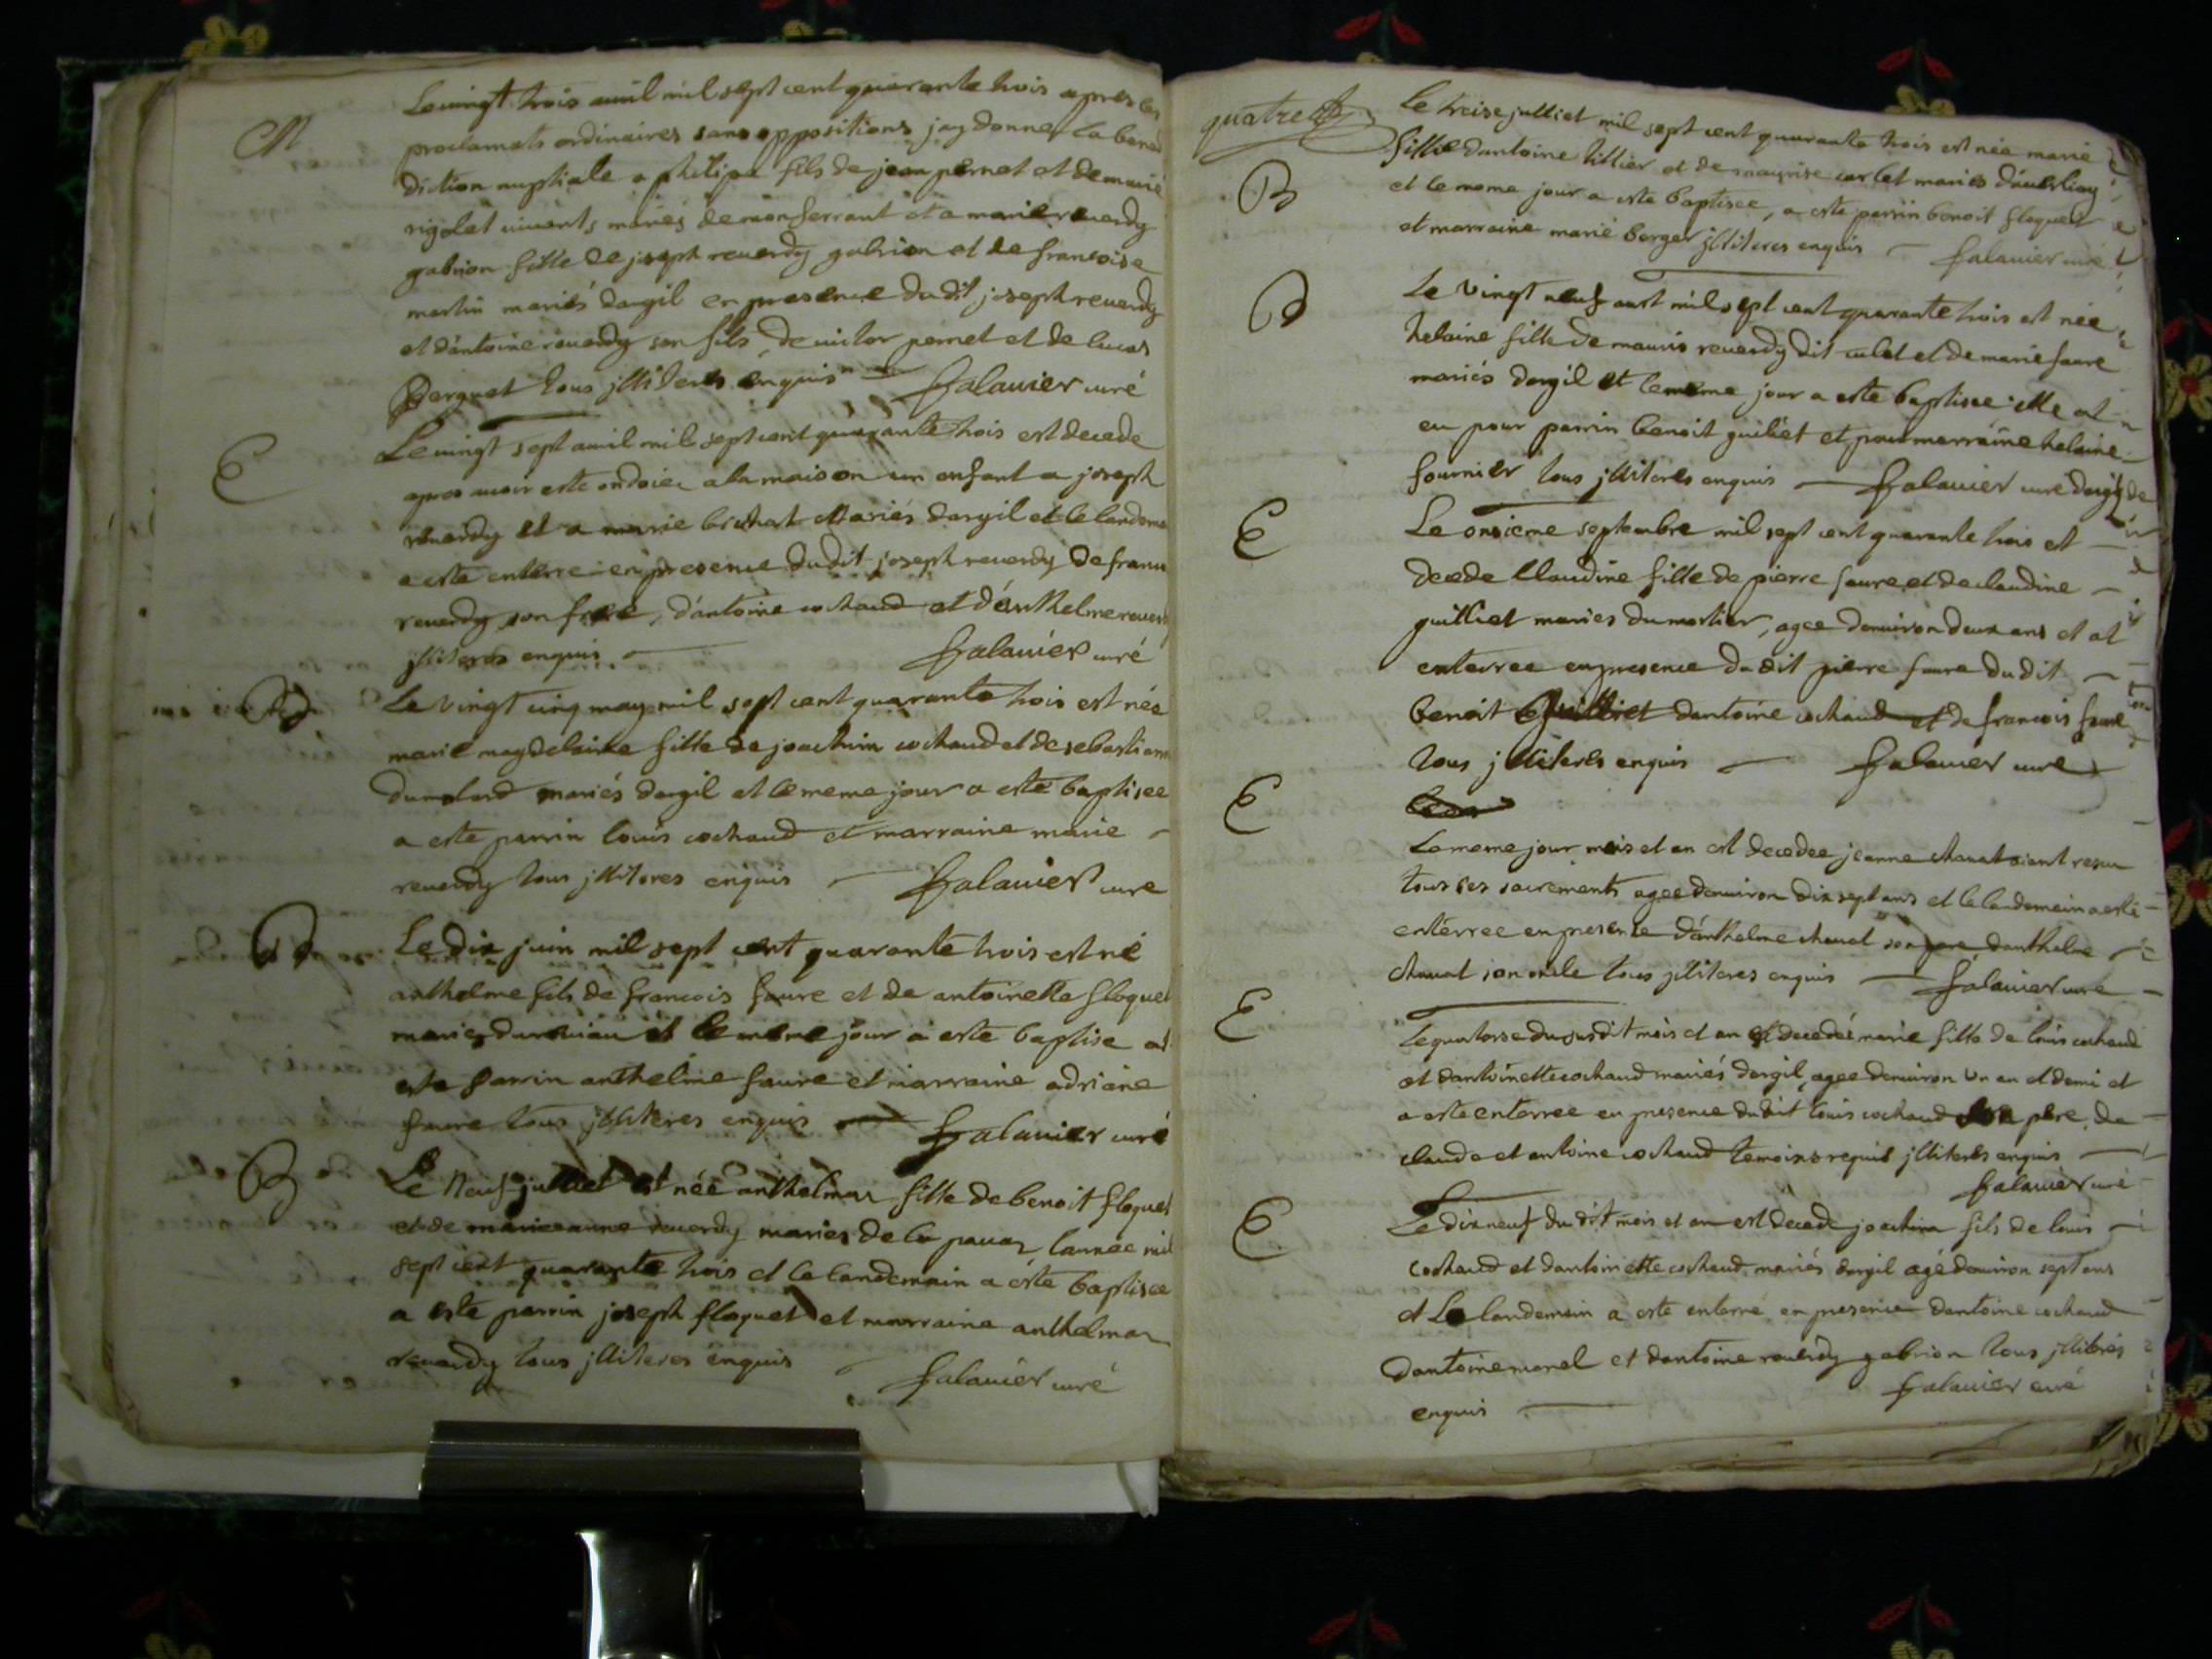 M
Le vingt trois avril mil sept cent quarante trois apres les
proclamats ordinaires sans oppositions jay donner la bene
diction nuptiale a philipe fils de jean pernet et de marie
rigolet vivants mariés de monferrant et a marie reverdy
gabrion fille de joseph reverdy gabrion et de francoise
martin mariés dargil en presence dudit joseph reverdy
et dántoine reverdy son fils, de victor pernet et de lucas
Berguet tous jlliteres enquis falavier curé
E
Le vingt sept avril mil sept cent quarante trois est decede
apres avoir este ondoiez a la maison un enfant a joseph
reverdy et a marie brichat Mariés dargil et le landema
a este enterre en presence dudit joseph reverdy de francoi
reverdy son frere, dántoine cochaud et dánthelme reverd
jlliteres enquis falavier curé
B
Le vingt cinq may mil sept cent quarante trois est née
marie magdelaine fille de joachim cochaud et de sebastiann
dumolard mariés dargil et le meme jour a este baptisee
a este parrin louis cochaud et marraine marie
reverdy tous jlliteres enquis falavier curé
B
Le dix juin mil sept cent quarante trois est né
anthelme fils de francois faure et de antoinette floquet
mariez et le meme jour a este baptise et
este parrin anthelme faure et marraine adriane
faure tous jlliteres enquis falavier curé
B
Le Neuf julliet est née anthelmaz fille de benoit floquet
et de marieanne reverdy maries de la pavaz lannee mil
sept cent quarante trois et le landemain a éste baptisee
a este parrin joseph floquet et marraine anthelmaz
reverdy tous jlliteres enquis
falavier curé
quatre
B
Le treise julliet mil sept cent quarante trois est née marie
fillie dantoine tillier et de carlet mariés
et le meme jour a este baptisee, a este parrin benoit floquet
et marraine marie berger jlliteres enquis falavier curé
B
Le vingt neuf aust mil sept cent quarante trois est née
helaine fille de mauris reverdy dit culet et de marie faure
mariés dargil et le meme jour a este baptisee elle at
eu pour parrin benoit guiliet et pour marraine helaine
fournier tous jlliteres enquis falavier curé dargil
E
Le onsieme septembre mil sept cent quarante trois et
decede Claudine fille de pierre faure et de claudine
guilliet maries du mortier, agee denviron deux ans et at
enterree en presence dudit pierre faure dudit
benoit Guilliet dantoine cochaud et de francois faure
tous jlliteres enquis falavier curé
E
Le meme jour mois et an est decedee jeanne chavat aient resu
tous ses sacrements agee denviron dix sept ans et le landemain a este
enterree en presence dánthelme chavat son pere, danthelme
chavat son oncle tous jlliteres enquis falavier curé
E
Le quatorse du susdit mois et an est decedeé marie fille de louis cochaud
et dantoinette cochaud mariés dargil, agee denviron un an et demi et
a este enterree en presence dudit louis cochaud son pere, de
claude et antoine cochaud temoins requis jlliteres enquis
falavier curé
E
Le dix neuf dudit mois et an est decede joachim fils de louis
cochaud et dantoinette cochaud mariés dargil agé denviron sept ans
et Le landemain a este enterre en presence dantoine cochaud
dantoine morel et dantoine reverdy gabrion tous jlliteres
enquis falavier curé